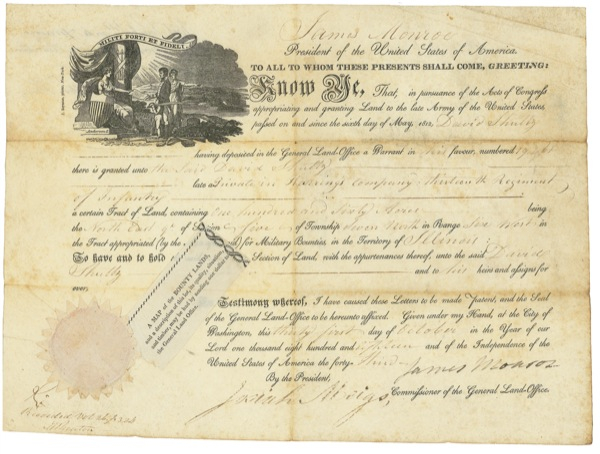 MILITI FORTI ET FIDELI.
James Monroe
President of the United States of America.
TO ALL TO WHOM THESE PRESENTS SHALL COME, GREETING:
Know Ye, That, in pursuance of the Acts of Congress
appropriating and granting Land to the late Army of the United States,
passed on and since the sixth day of May, 1812, David Shultz
having deposited in the General Land-Office a Warrant in his favour, numbered
there is granted unto the said David Shultz
late a Private in Company Regiment
of Infantry
a certain Tract of Land, containing One hundred and sixty Acres being
the North East of Section five of Township seven North in Range West in
the Tract appropriated (by the for Military Bounties, in the Territory of Illinois:
To have and to hold Section of Land, with the appurtenances thereof, unto the said David
Shultz and to his heirs and assigns for
ever,
A MAP of the BOUNTY LANDS,
and a description of this lot, its quality, situation,
and timber, may be had by sending one dollar to
the General Land Office.
Testimony whereof, I have caused these Letters to be made Patent, and the Seal
of the General Land-Office to be hereunto affixed. Given under my Hand, at the City of
Washington, this thirty first day of October in the Year of our
Lord one thousand eight hundred and and of the Independence of the
United States of America the forty-third
By the President, James Monroe
Josiah Meigs, Commissioner of the General Land-Office.
Recorded